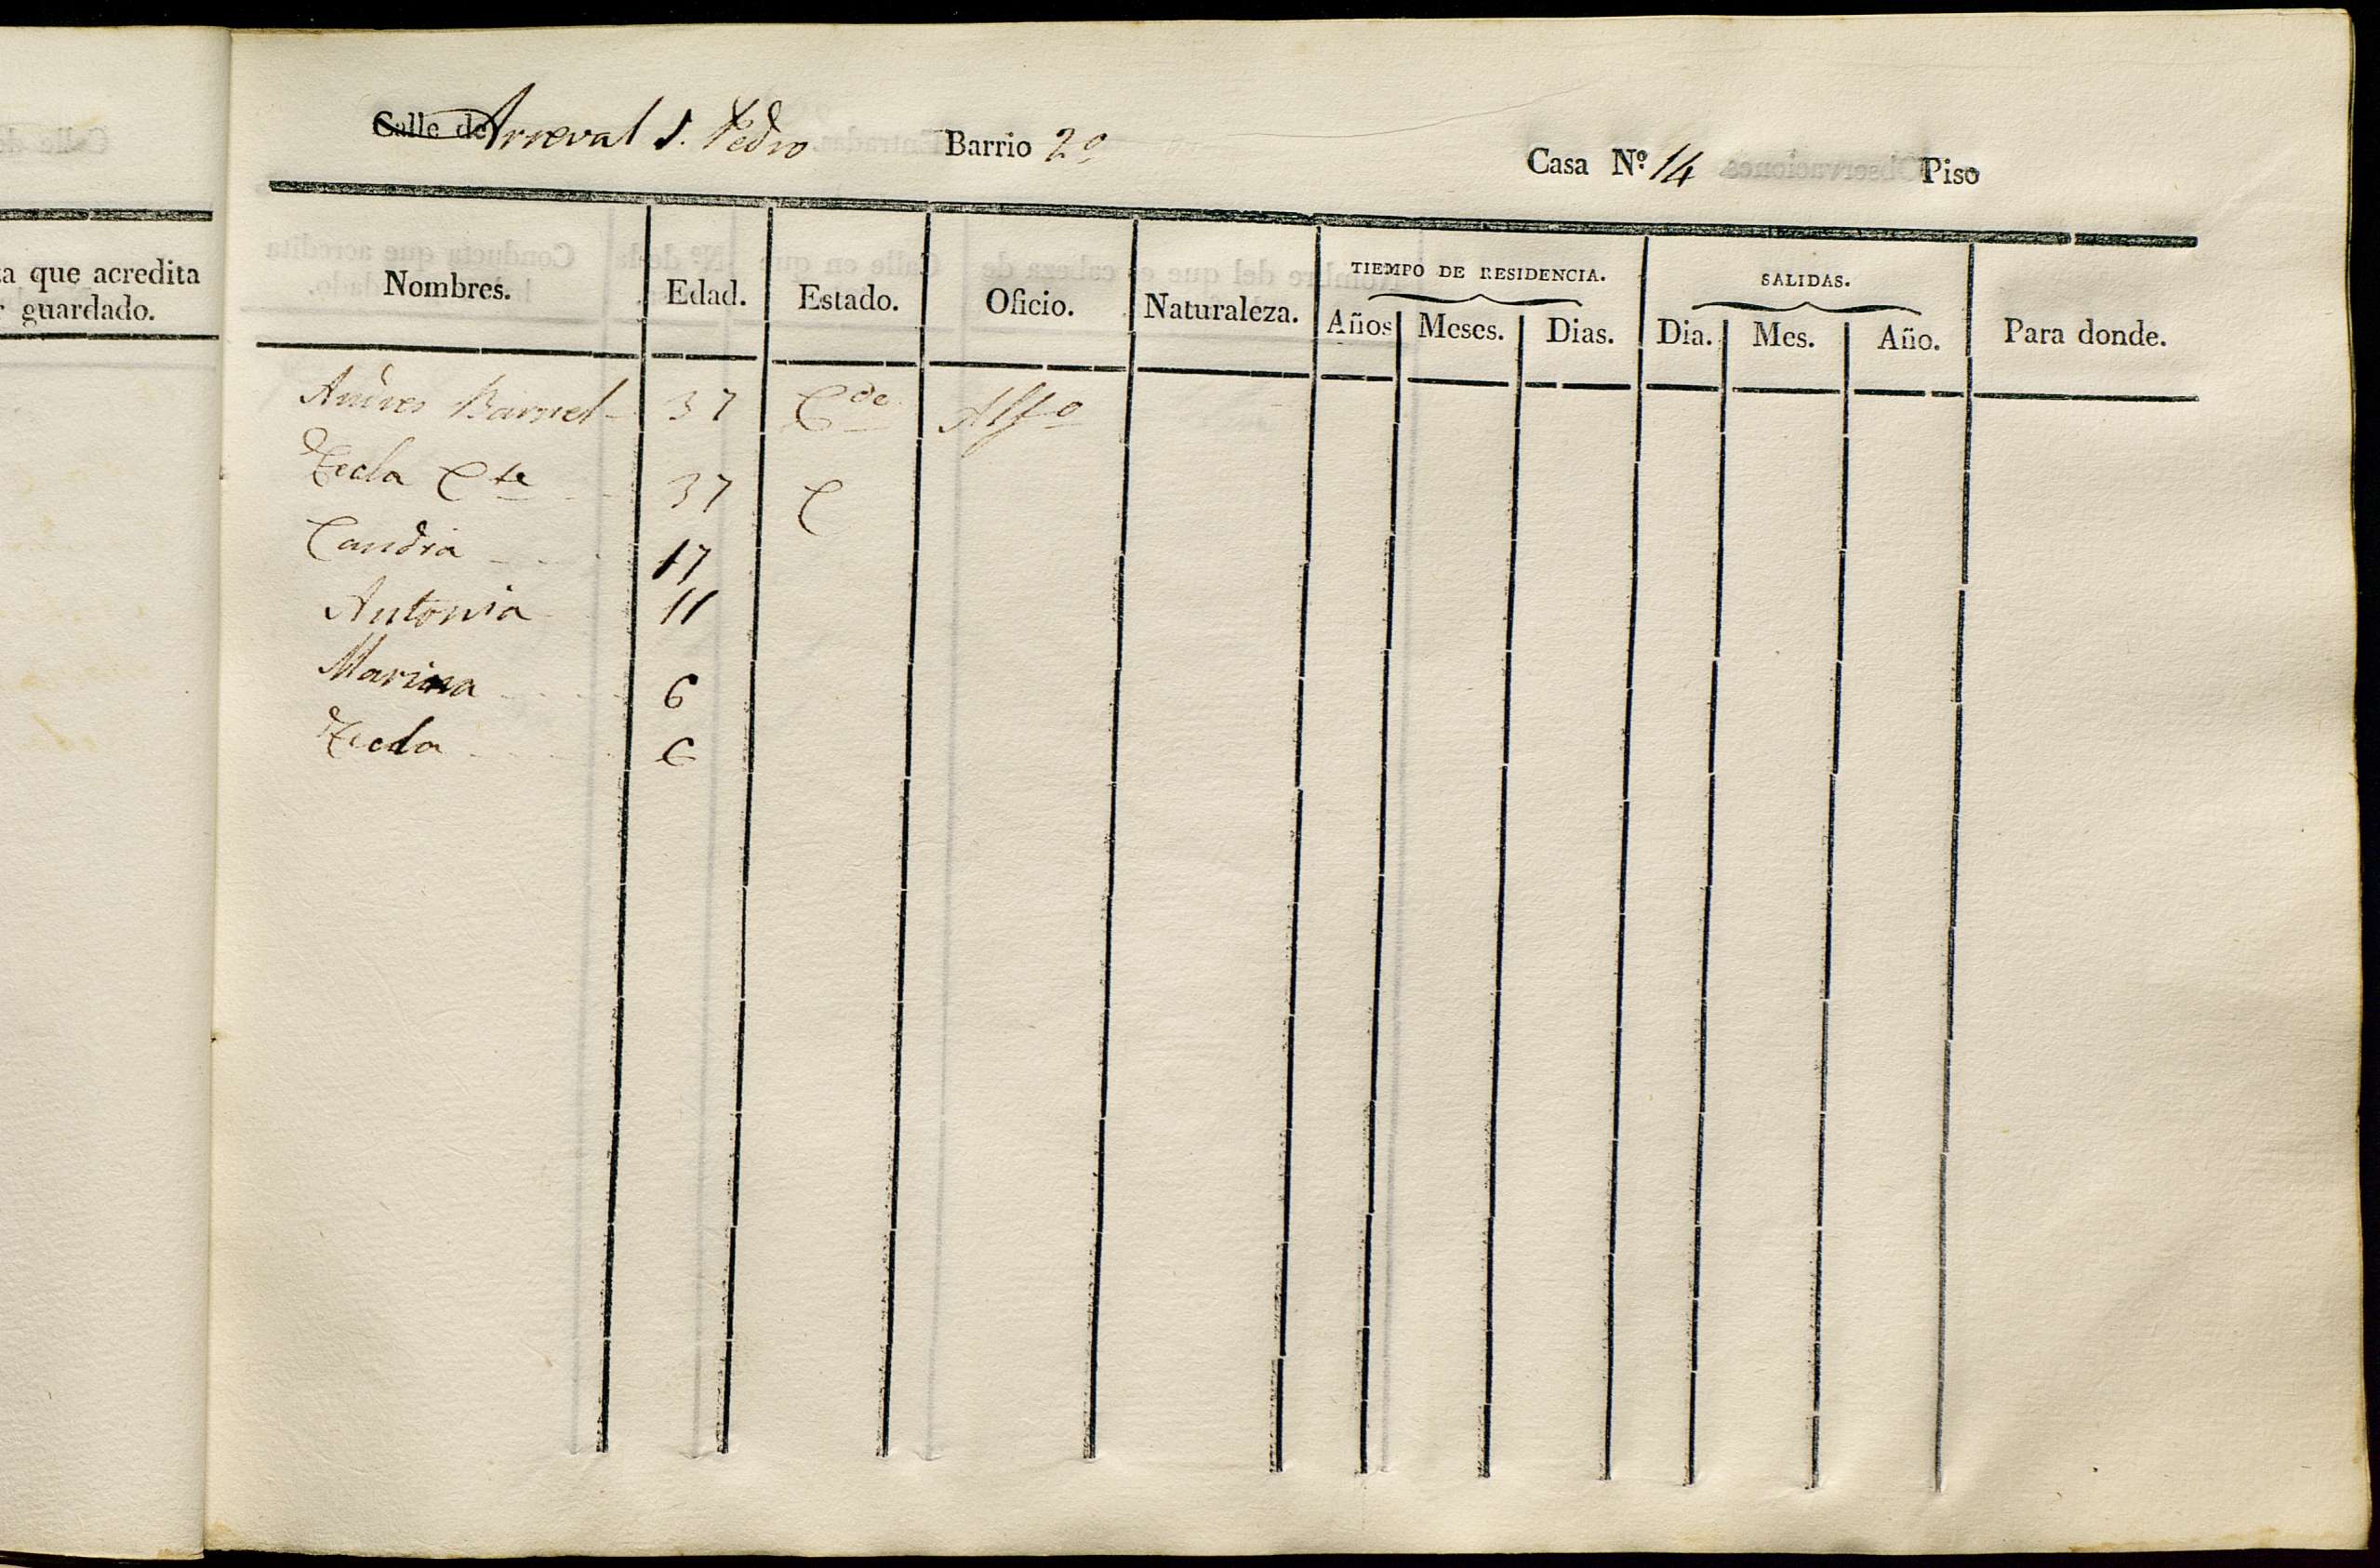 Calle de Arreval S. Pedro Barrio 2º Casa Nº 14 Piso
a que acredita
guardado.
Nombres. Edad. Estado. Oficio. Naturaleza. TIEMPO DE RESIDENCIA. Años Meses. Dias. SALIDAS. Dia. Mes. Año. Para donde.
37 Cdo
Tecla Cte 37 C
Candia 17
Antonia 11
Mariana 6
Tecla 6